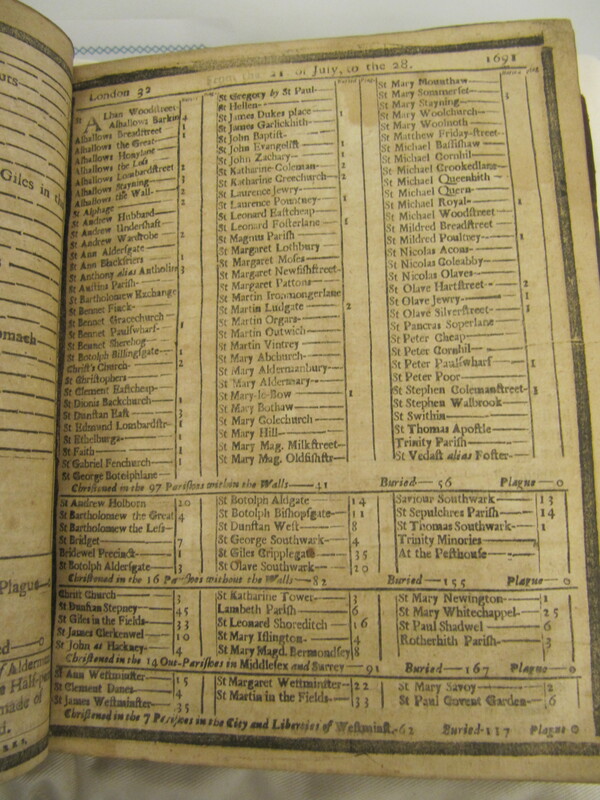 London 32 From the 21 of July, to the 28. 1691
St Alban Woodstreet
Alhallows Barkin 4
Alhallows Breadstreet 1
Alhallows the Great 1
Alhallows Honylane
Alhallows the Less
Alhallows Lombardstreet 2
Alhallows Stayning
Alhallows the Wall 2
St Alphage 2
St Andrew Hubbard
St Andrew Undershaft
St Andrew Wardrobe 2
St Ann Aldersgate
St Ann Blackfriers 1
St Anthony alias Antholin 3
St Austins Parish
St Bartholomew Exchange
St Bennet Finck
St Bennet Gracechurch
St Bennet Paulswharf 1
St Bennet Sherehog
St Botolph Billingsgate 1
Christ's Church 2
St Christophers
St Clement Eastcheap
St Dionis Backchurch 1
St Dunstan East 3
St Edmund Lombardstr 1
St Ethelburga 1
St Faith 1
St Gabriel Fenchurch 1
St George Botolphlane
St Gregory by St Paul
St Hellen
St James Dukes place 1
St James Garlickhith
St John Baptist
St John Evangelist 1
St John Zachary
St Katharine Coleman 2
St Katharine Creechurch 2
St Laurence Jewry
St Laurence Pountney 1
St Leonard Eastcheap
St Leonard Fosterlane 1
St Magnus Parish
St Margaret Lothbury
St Margaret Moses
St Margaret Newfishstreet
St Margaret Pattons
St Martin Ironmongerlane
St Martin Ludgate 2
St Martin Orgars
St Martin Outwich
St Martin Vintrey
St Mary Abchurch
St Mary Aldermanbury
St Mary Aldermary
St Mary-le-Bow 1
St Mary Bothaw
St Mary Colechurch
St Mary Hill
St Mary Mag. Milkstreet
St Mary Mag. Oldfishstr
St Mary Mounthaw
St Mary Somerset 1
St Mary Stayning
St Mary Woolchurch
St Mary Woolnoth
St Matthew Friday-street
St Michael Bassishaw
St Michael Cornhil
St Michael Crookedlane
St Michael Queenhith
St Michael Quern
St Michael Royal 1
St Michael Woodstreet
St Mildred Breadstreet
St Mildred Poultney 1
St Nicolas Acons
St Nicolas Coleabby
St Nicolas Olaves
St Olave Hartstreet 2
St Olave Jewry 1
St Olave Silverstreet 3
St Pancras Soperlane
St Peter Cheap
St Peter Cornhil
St Peter Paulswharf 1
St Peter Poor
St Stephen Colemanstreet 3
St Stephen Walbrook
St Swithin
St Thomas Apostle
Trinity Parish
St Vedast alias Foster
Christned in the 97 Parishes within the Walls 41 Buried 56 Plague 0
St Andrew Holborn 20
St Bartholomew the Great 4
St Bartholomew the Less
St Bridget 7
Bridewel Precinct 1
St Botolph Aldersgate 3
St Botolph Aldgate 14
St Botolph Bishopsgate 11
St Dunstan West 8
St George Southwark 4
St Giles Cripplegate 35
St Olave Southwark 20
Saviour Southwark 13
St Sepulchres Parish 14
St Thomas Southwark 1
Trinity Minories
At the Pesthouse
Christned in the 16 Parishes without the Walls 82 Buried 155 Plague 0
Christ Church 3
St Dunstan Stepney 45
St Giles in the Fields 33
St James Clerkenwel 10
St John at Hackney 4
St Katharine Tower 3
Lambeth Parish 6
St Leonard Shoreditch 16
St Mary Islington 4
St Mary Magd. Bermondsey 8
St Mary Newington 1
St Mary Whitechappel 25
St Paul Shadwel 6
Rotherhith Parish 3
Christned in the 14 Out-Parishes in Middlesex and Surrey 91 Buried 167 Plague 0
St Ann Westminster 15
St Clement Danes 4
St James Westminster 35
St Margaret Westminster 22
St Martin in the Fields 33
St Mary Savoy 2
St Paul Covent Garden 6
Christned in the 7 Parishes in the City and Liberties of Westminst. 62 Buried 117 Plague 0
Giles in the
Plague
Half-pe
made of